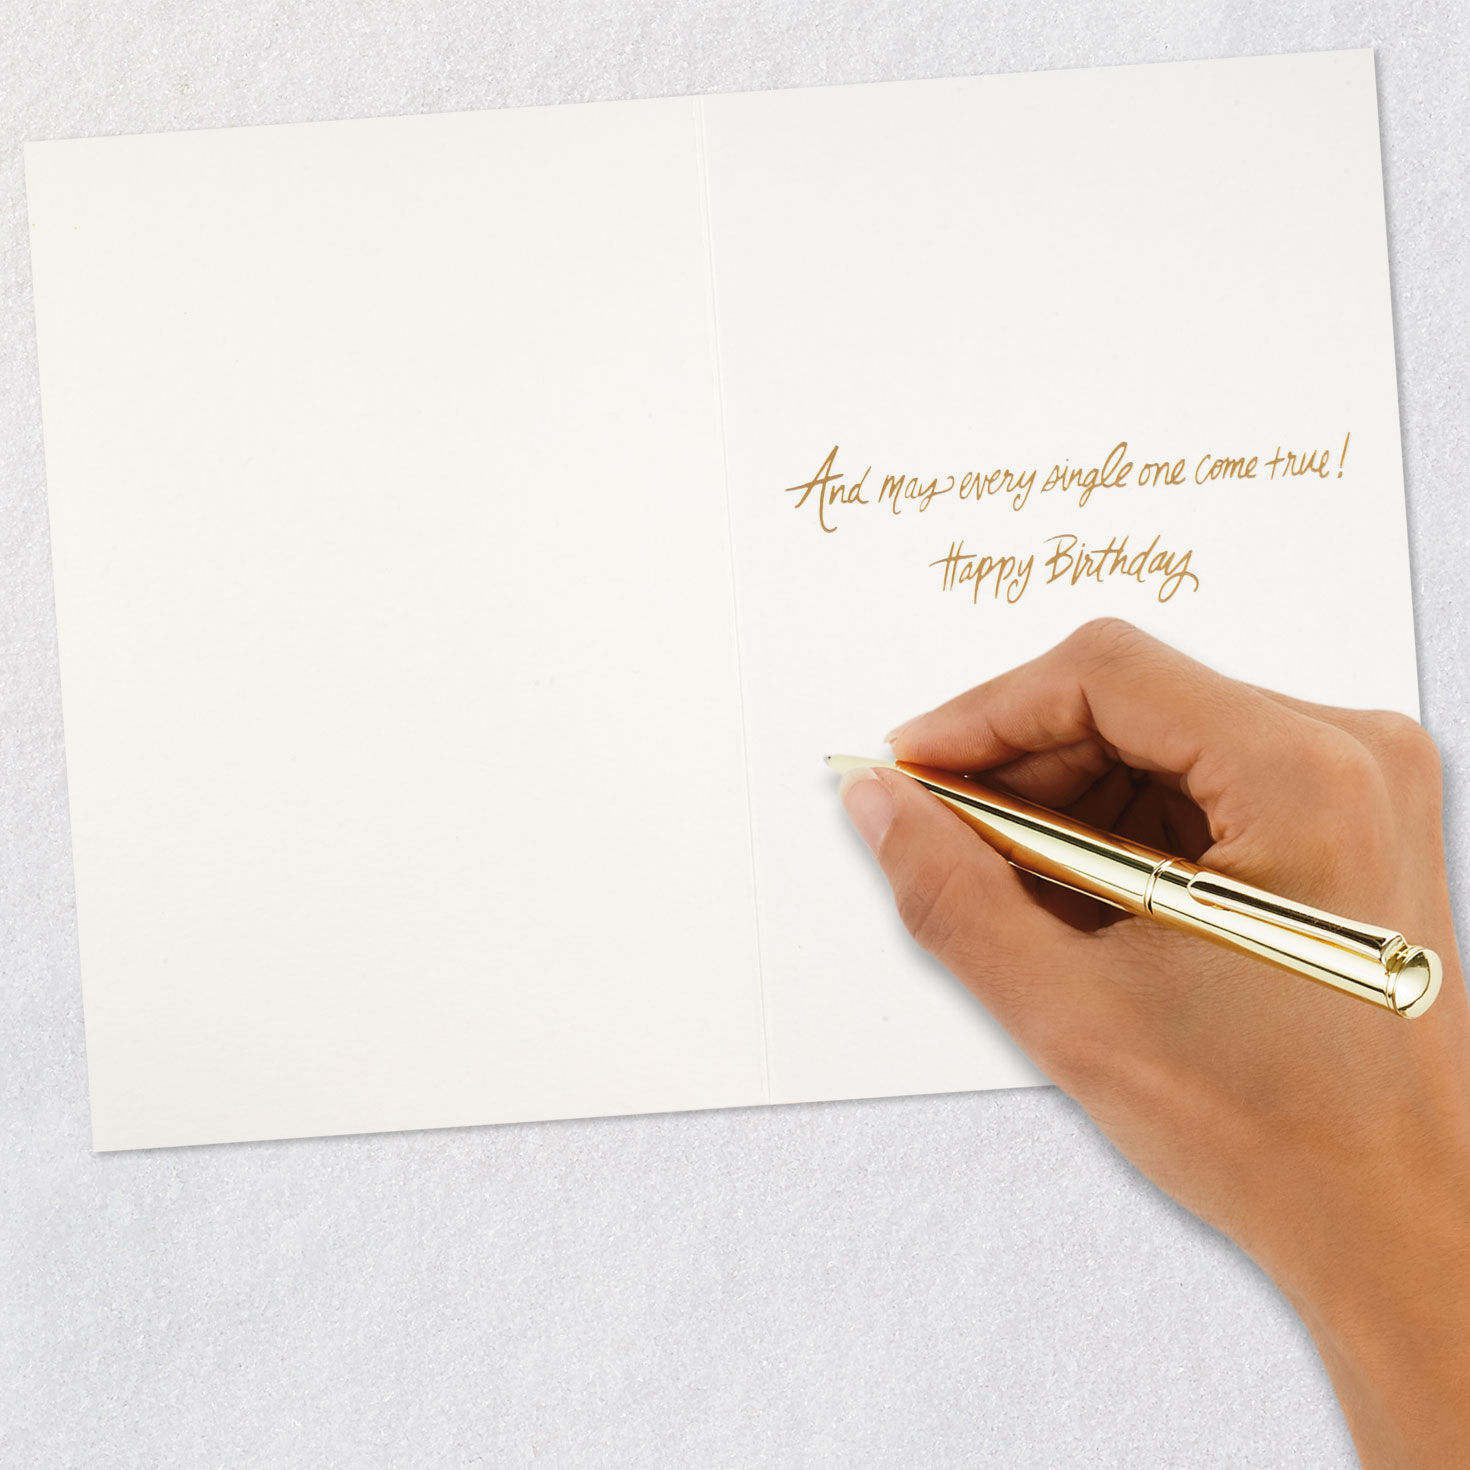 And may every single one come true!
Happy Birthday